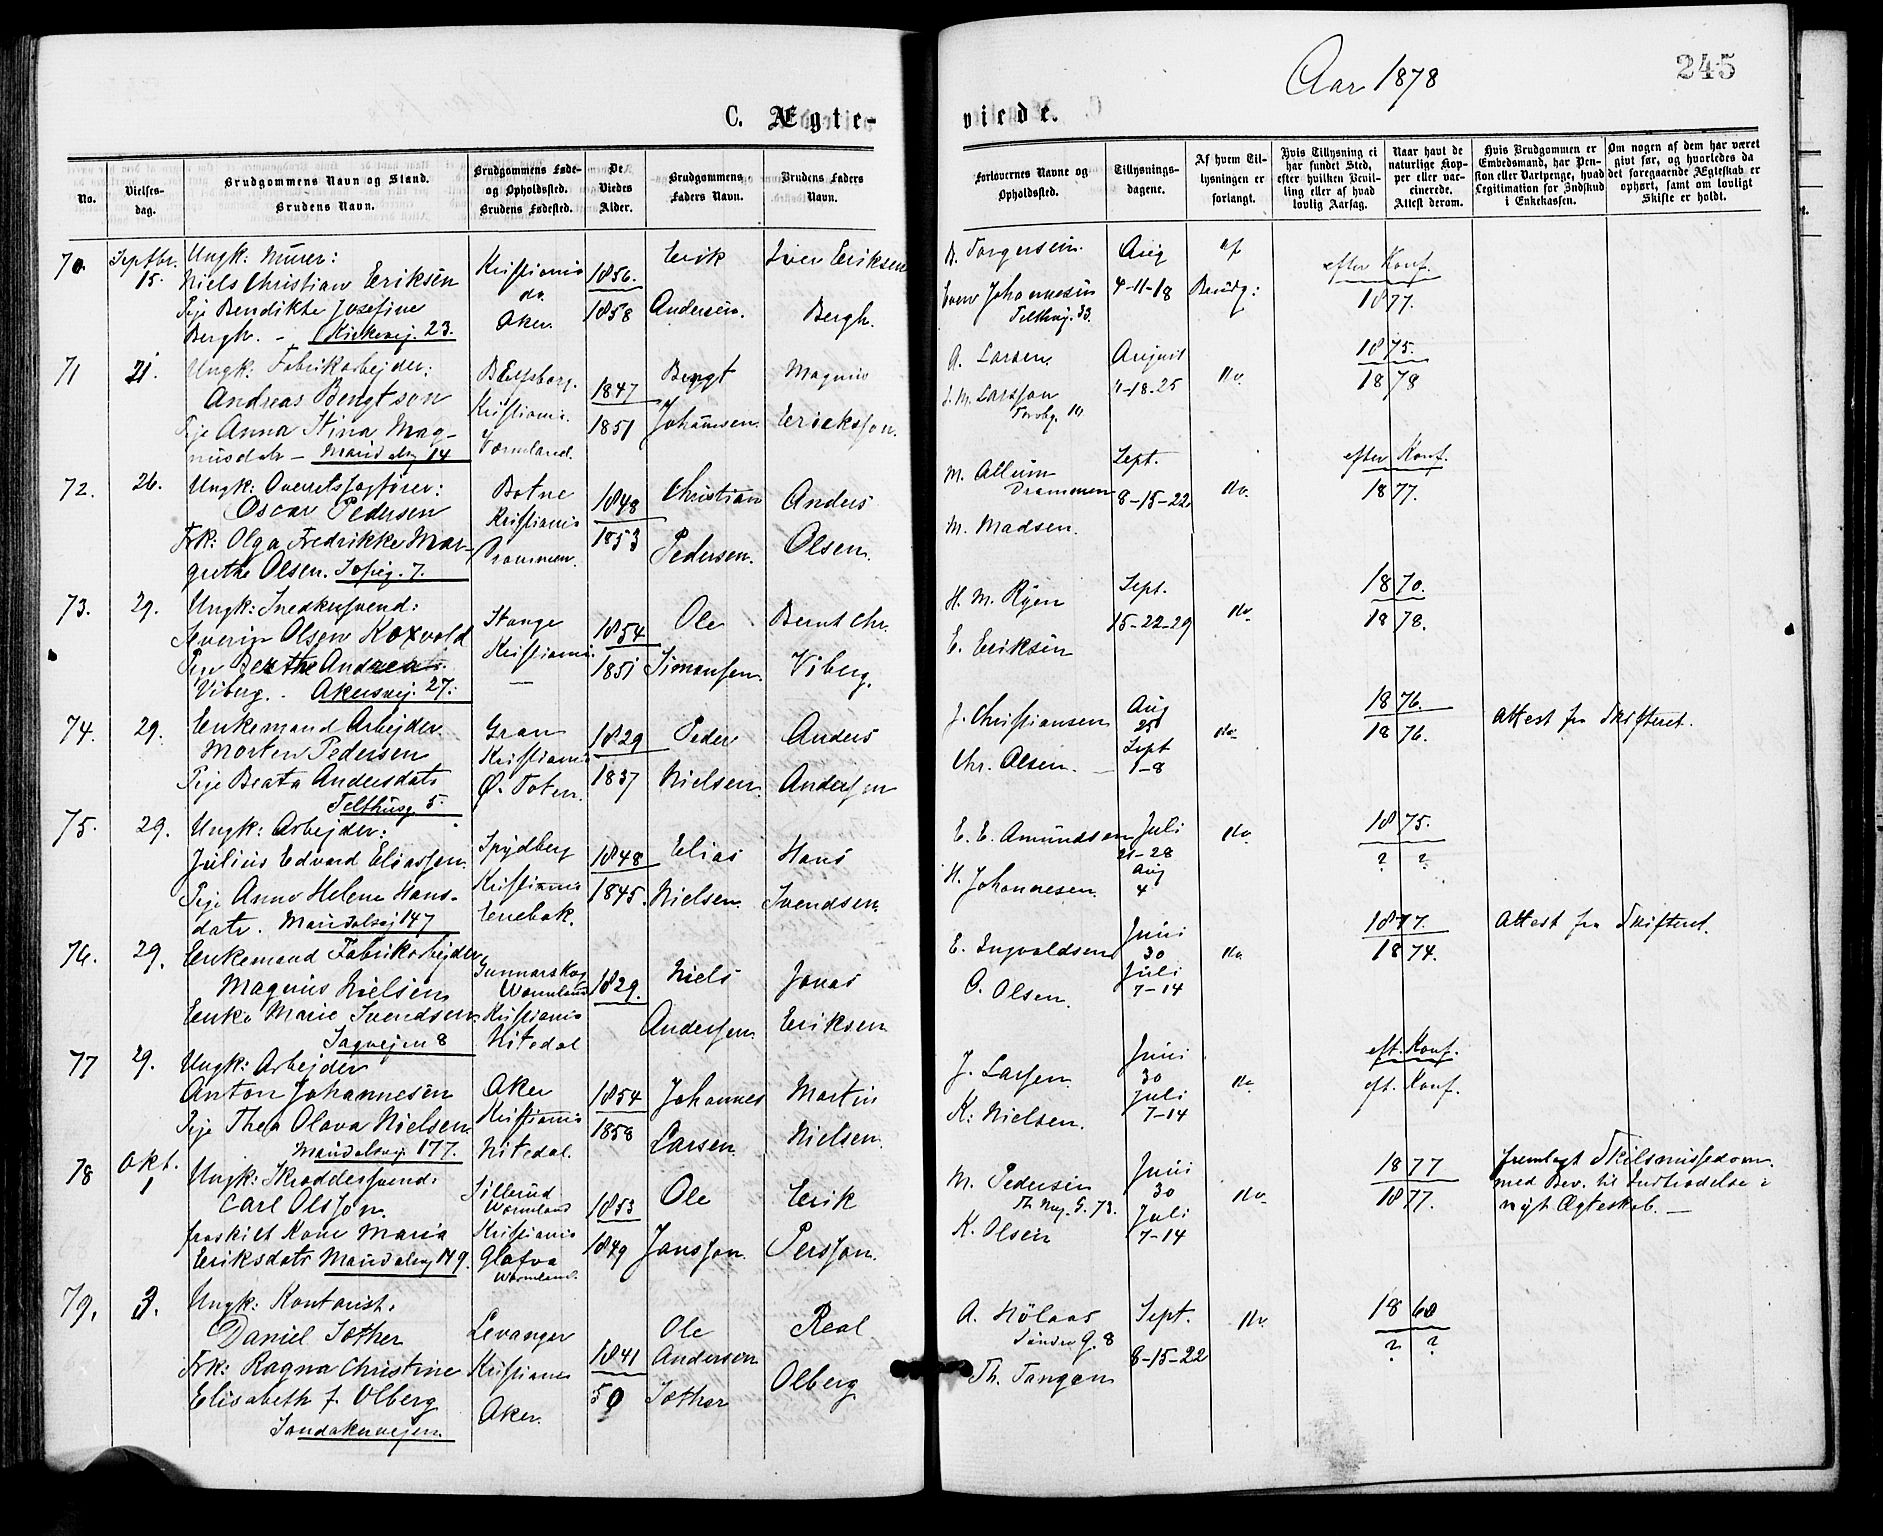 Aar 1878
245
C. Ægte-
viede.
No.
Vielses-
dag.
Brudgommens Navn og Stand.
Brudens Navn.
Brudgommens Føde-
og Opholdssted.
Brudens Fødested.
De
Viedes
Alder.
Brudgommens
Faders Navn.
Brudens Faders
Navn.
Forlovernes Navne og
Opholdssted.
Tillysnings-
dagene.
Af hvem Til-
lysningen er
forlangt.
Hvis Tillysning ei
har fundet Sted,
efter hvilken Bevil-
ling eller af hvad
lovlig Aarsag.
Naar havt de
naturlige Kop-
per eller vac-
cinerede.
Attest derom.
Hvis Brudgommen er
Embedsmand, har Pen-
sion eller Vartpenge, hvad
Legitimation for Indskud
i Enkekassen.
Om nogen af dem har været
givt før, og hvorledes da
det foregaaende Ægteskab er
ophørt, samt om lovligt
Skifte er holdt.
70. Septbr. 15. Ungk: Murer:
Niels Christian Eriksen
Pige Bendikte Josefine
Bergh. – Kirkevej. 23.
Kristiania
do.
Aker.
1856.
1858
Erik
Andersen.
Iver Eriksen
Bergh.
B. Torgersen.
Even Johannesen
Telthusg. 33.
Aug
4-11-18
af
Brudg:
efter Konf.
1877.
71 21. Ungk: Fabrikarbejder:
Andreas Bengtson
Pige Anna Stina Mag-
nusdatr – Maridalsvg 14
Elfsborg.
Kristiania.
Vermland.
1847
1851
Bengt
Johansen.
Magnus
Ericksson.
A. Larsen.
J. M. Larsson
Torvbg. 10
August
4-18-25
do.
1875.
1878
72. 26. Ungk: Overretssagfører:
Oscar Pedersen
Frk: Olga Fredrikke Mar-
grethe Olsen. Sofieg. 7.
Botne
Kristiania
Drammen.
1848
1853
Christian
Pedersen.
Anders
Olsen.
M. Allum
Drammen
M. Madsen.
Sept.
8-15-22.
do.
efter Konf.
1877.
73. 29. Ungk: Snedkersvend:
Severin Olsen Koxvold
Pige Berthe Andrea
Viberg. . Akersvej. 27.
Stange
Kristiania.
—
1854
1851
Ole
Simensen.
Bernt Chr.
Viberg.
H. M. Ryen
E. Eriksen
Sept.
15-22-29
do.
1870.
1878.
74. 29. Enkemand Arbejder
Morten Pedersen
Pige Beata Andersdatr
Telthusg 5.
Gran
Kristiania
Ø. Toten.
1829
1837
Peder
Nielsen.
Anders
Andersen
J. Christiansen
Chr. Olsen. –
Aug
25
Sept
1-8
do.
1876.
1876.
Attest fra Skifteret.
75. 29. Ungk: Arbejder:
Julius Edvard Eliassen.
Pige Anne Helene Hans-
datr. Maridalsvej 147
Spydberg
Kristiania
Enebak.
1848
1845.
Elias
Nielsen.
Hans
Svendsen.
E. E. Amundsen
H. Johannesen.
Juli
21-28
Aug
4
do.
1875.
? ?
76. 29. Enkemand Fabrikarbejder
Magnus Nielsen
Enke Marie Svendsen
Sagvejen 8
Gunnarskog
Wermland
Kristiania
Nitedal
1829.
Niels
Andersen.
Jonas
Eriksen
E. Ingvaldsen
O. Olsen.
Juni
30
Juli
7-14
do.
1877.
1874.
Attest fra Skifteret.
77 29. Ungk: Arbejder
Anton Johannesen
Pige Thea Olava Nielsen.
Maridalsvej. 177.
Aker
Kristiania
Nitedal.
1854
1858
Johannes
Larsen.
Martin
Nielsen.
J. Larsen.
K. Nielsen.
Juni
30
Juli
7-14
do.
eft. Konf.
eft. Konf.
78 Okt. 1 Ungk: Skreddersvend:
Carl Olsson.
fraskilt Kone Maria
Eriksdatr Maridalsvej 149.
Sillerud
Wermland
Kristiania
Glafva
Wermland.
1853
1849
Ole
Jansson.
Erik
Persson.
M. Pedersen
Th. Mey. G. 73.
K. Olsen
Juni
30
Juli
7-14
do.
1877
1877.
fremlagt Skilsmissedom.
med Bev. til Indtrædelse i
nyt Ægteskab. –
79. 3. Ungk: Kontorist.
Daniel Sother
Frk: Ragna Christine
Elisabeth f. Olberg
Sandakervejen.
Levanger
Kristiania
Aker.
1841
50
Ole
Andersen
Sother
Real
Olberg
A. Hölaas
Søndre G. 8
Th. Tangen
Sept.
8-15-22
do.
1860
? ?